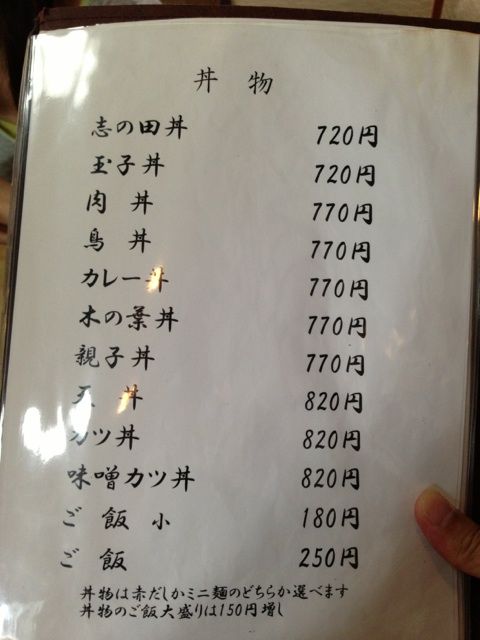 丼 物
志の田丼 720円
玉子丼 720円
肉 丼 770円
鳥 丼 770円
カレー丼 770円
木の葉丼 770円
親子丼 770円
天 丼 820円
カツ丼 820円
味噌カツ丼 820円
ご 飯 小 180円
ご 飯 250円
丼物は赤だしかミニ麺のどちらか選べます
丼物のご飯大盛りは150円増し